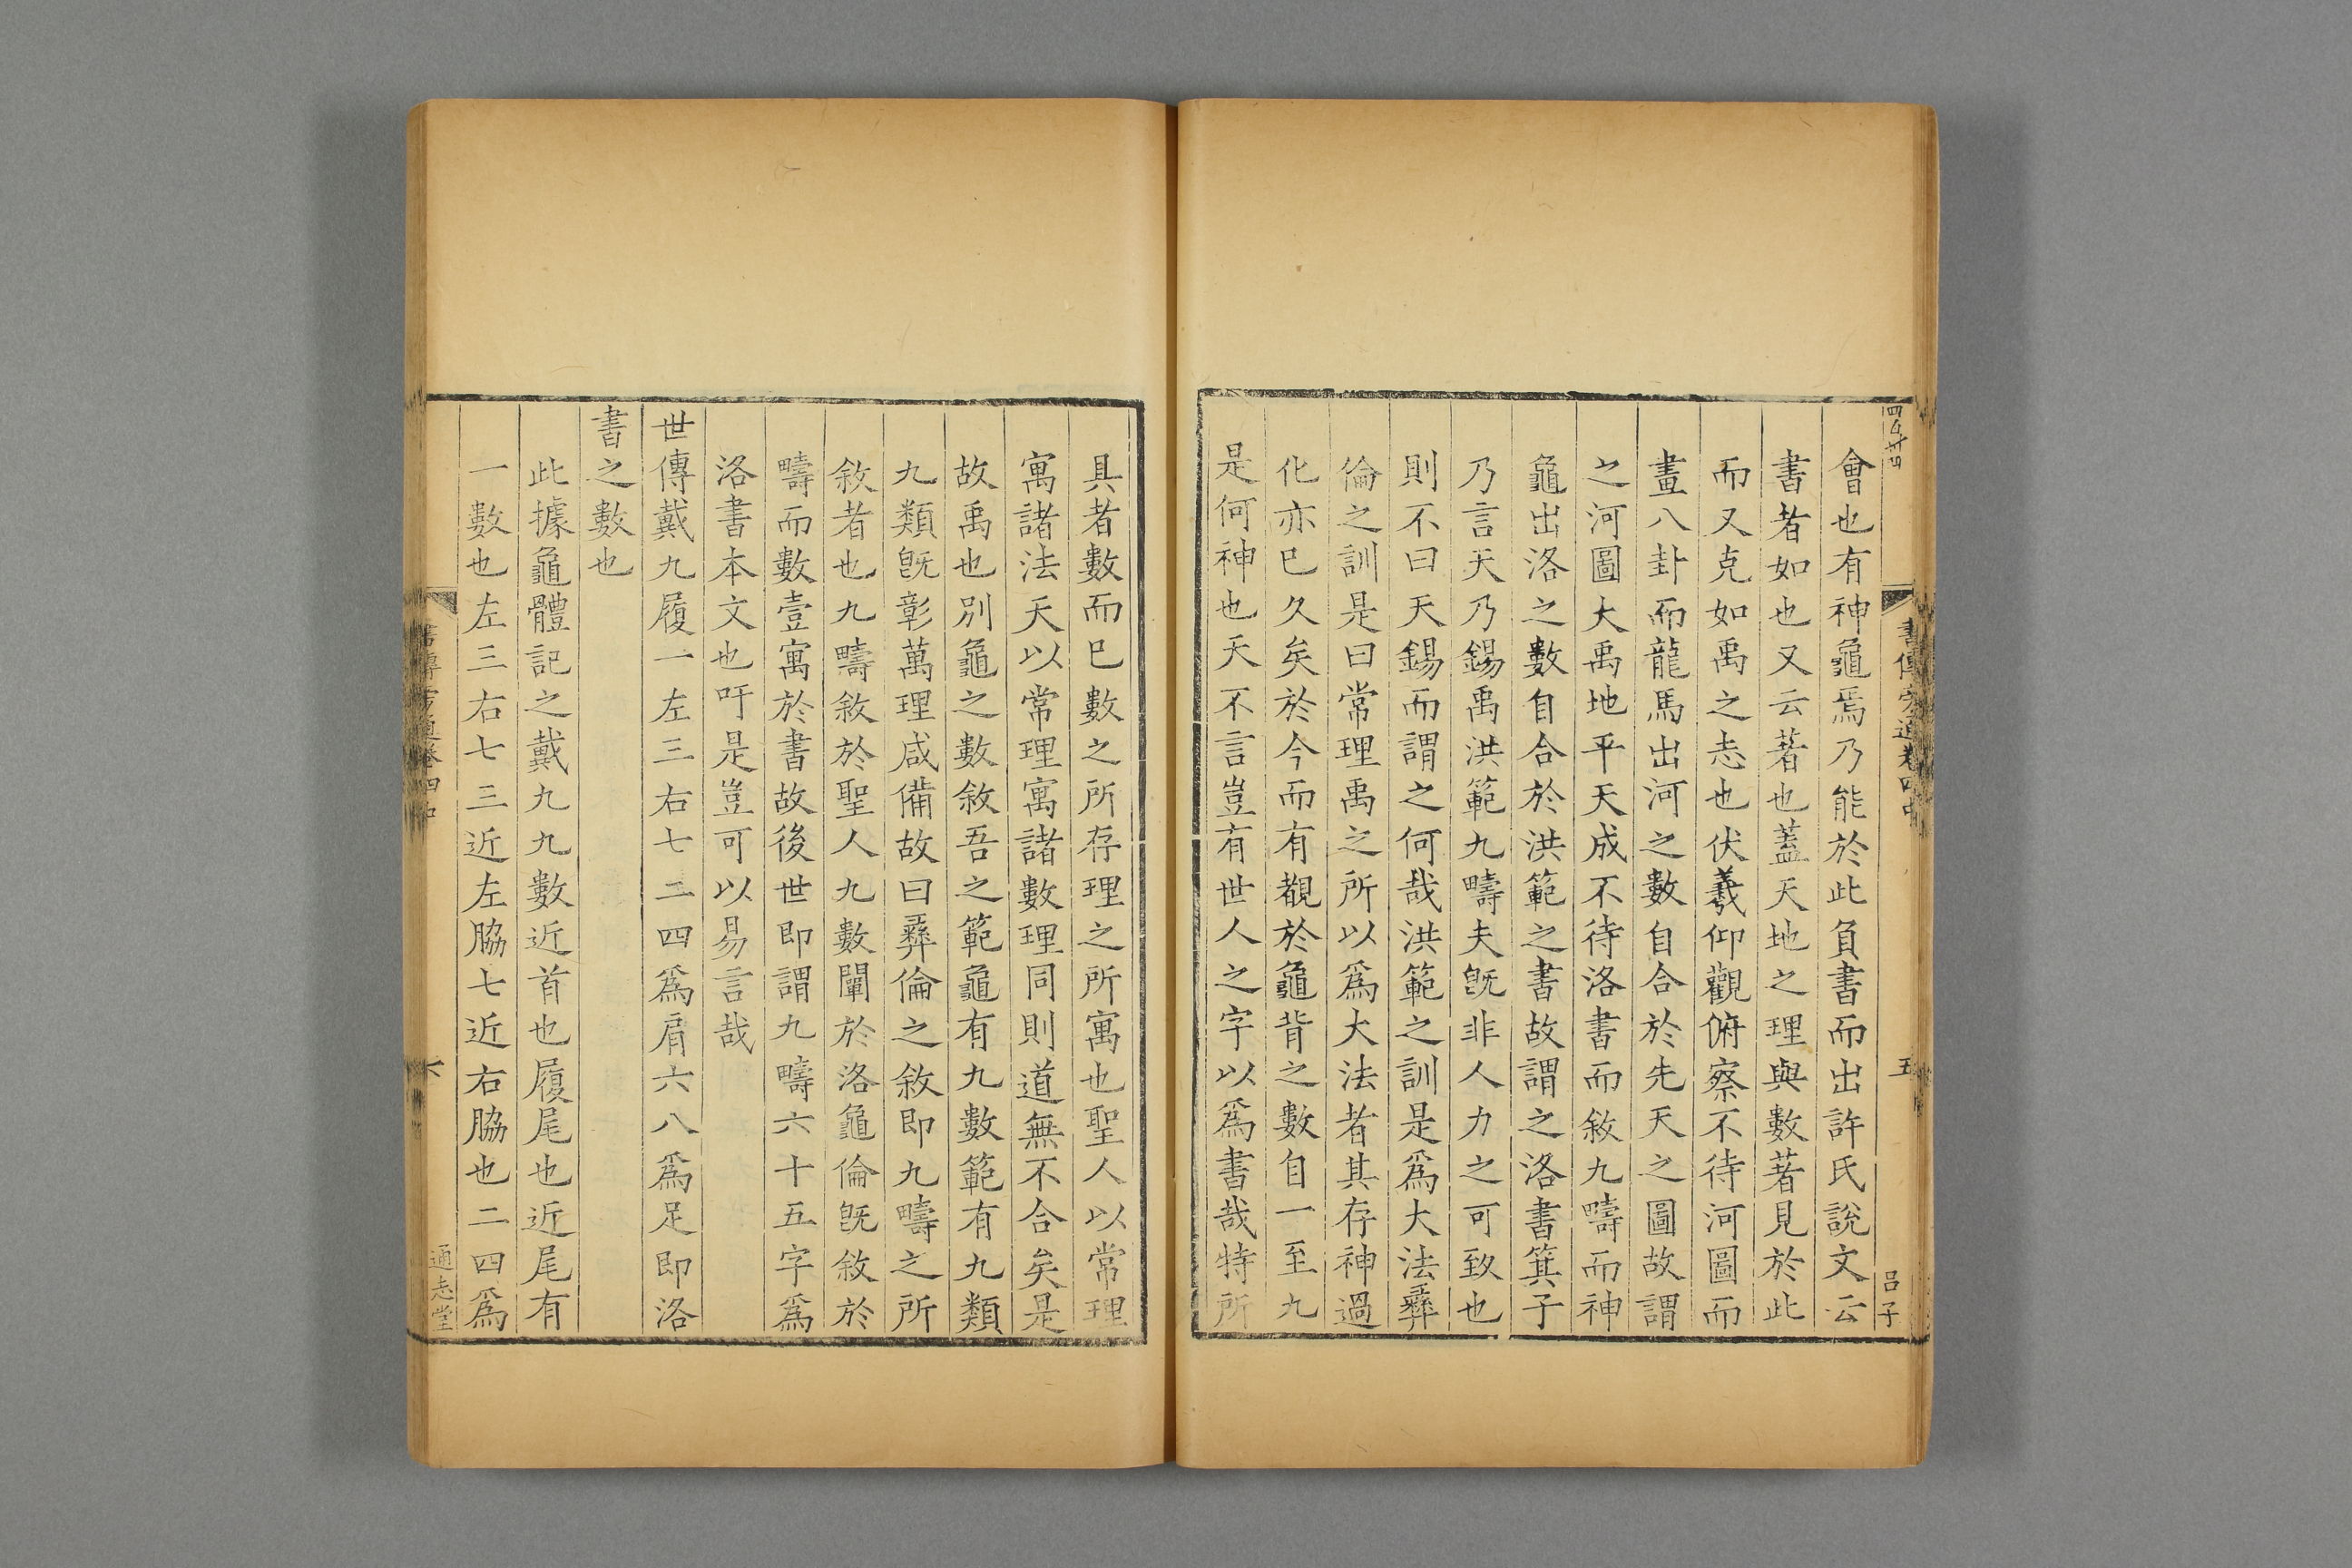 書傳旁通卷四中
五
吕子
會也有神龜焉乃能於此負書而出許氏說文云
書者如也又云著也蓋天地之理與數著見於此
而又克如禹之志也伏羲仰觀俯察不待河圖而
畫八卦而龍馬出河之數自合於先天之圖故謂
之河圖大禹地平天成不待洛書而敘九疇而神
龜出洛之數自合於洪範之書故謂之洛書箕子
乃言天乃錫禹洪範九疇夫旣非人力之可致也
則不曰天錫而謂之何哉洪範之訓是爲大法彝
倫之訓是曰常理禹之所以爲大法者其存神過
化亦已久矣於今而有覩於龜背之數自一至九
是何神也天不言豈有世人之字以爲書哉特所
具者數而已數之所存理之所寓也聖人以常理
寓諸法天以常理寓諸數理同則道無不合矣是
故禹也別龜之數敘吾之範龜有九數範有九類
九類旣彰萬理咸備故曰彝倫之敘即九疇之所
敘者也九疇敘於聖人九數闡於洛龜倫旣敘於
疇而數壹寓於書故後世即謂九疇六十五字爲
洛書本文也吁是豈可以易言哉
世傳戴九履一左三右七二四爲肩六八爲足即洛
書之數也
此據龜體記之戴九九數近首也履尾也近尾有
一數也左三右七三近左脇七近右脇也二四爲
書傳旁通卷四中
六
通志堂